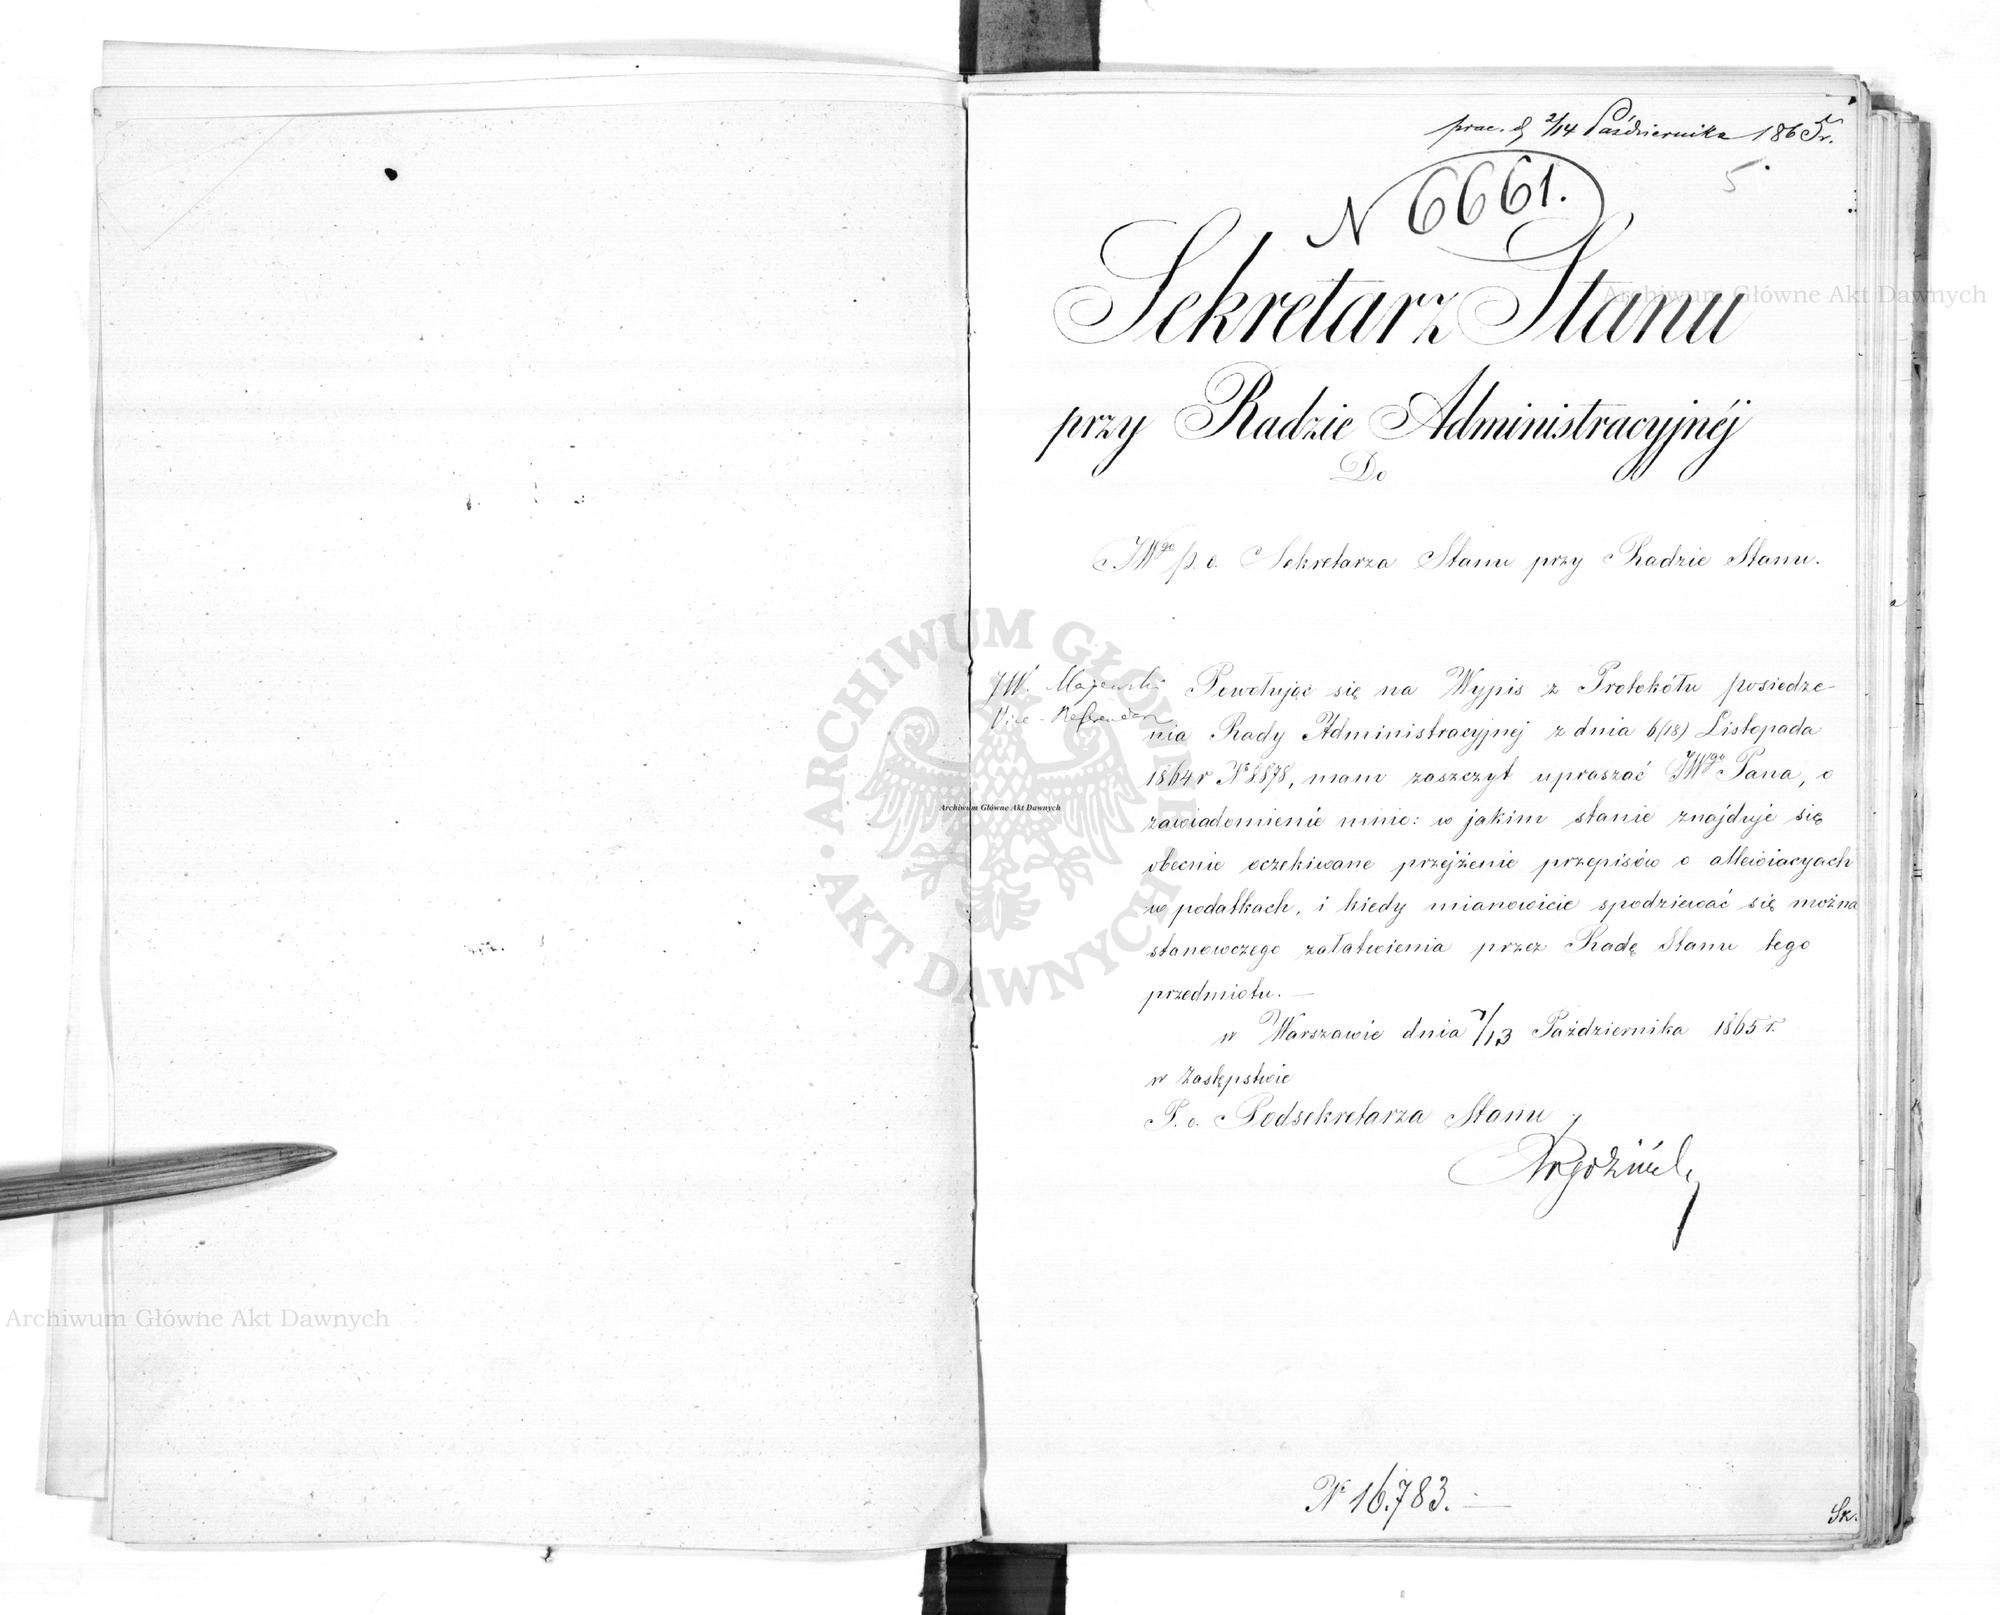 prae. d 2/14 Października 1865 r.
5
N 6661.
Sekretarz Stanu
przy Radzie Administracyjnéj
Do
JWgo p.o. Sekretarza Stanu przy Radzie Stanu.
JW. Majewski
Vice-Referendarz
Powołując się na Wypis z Protokółu posiedze-
nia Rady Administracyjnej z dnia 6/(18) Listopada
1864 r No 2878, mam zaszczyt upraszać JWgo Pana, o
zawiadomienie mnie: w jakim stanie znajduje się
obecnie oczekiwane przejżenie przepisów o allewiacyach
w podatkach, i kiedy mianowicie spodziewać się można
stanowczego załatwienia przez Radę Stanu tego
przedmiotu. —
w Warszawie dnia 1/13 Października 1865 r.
w Zastępstwie
P. o. Podsekretarza Stanu
No 16.783. —
Sk.
Archiwum Główne Akt Dawnych
Archiwum Główne Akt Dawnych
Archiwum Główne Akt Dawnych
ARCHIWUM GŁÓWNE • AKT DAWNYCH